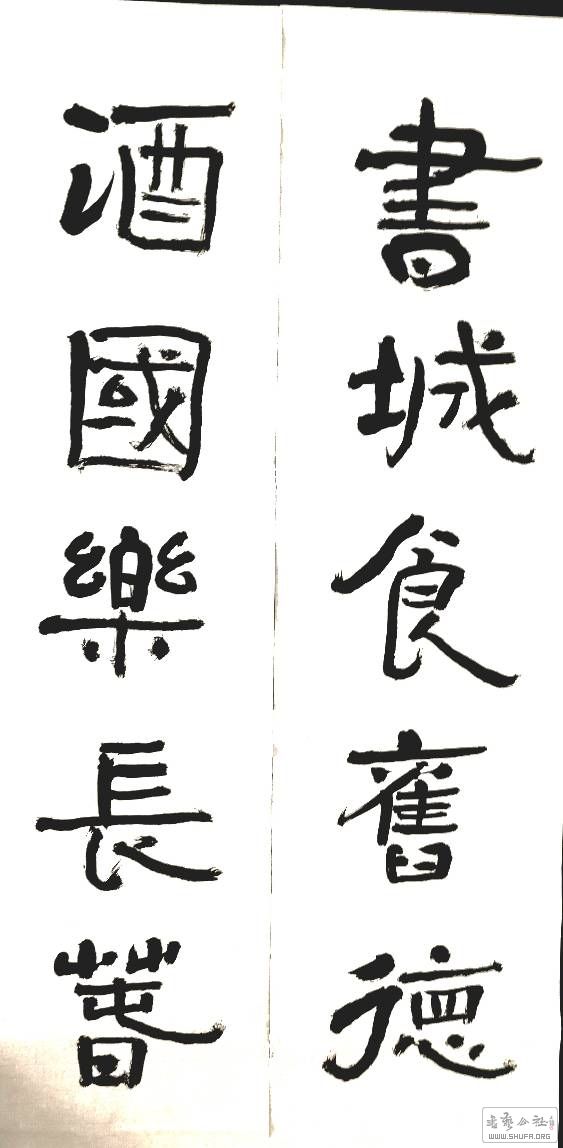 書城食舊德
酒國樂長春
書藝公社
WWW.SHUFA.ORG